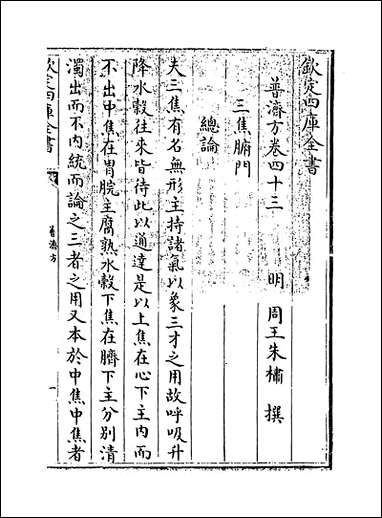 欽定四庫全書
普濟方卷四十三　明　周王朱橚　撰
三焦腑門
總論
夫三焦有名無形主持諸氣以象三才之用故呼吸升
降水穀往來皆待此以通達是以上焦在心下主内而
不出中焦在胃脘主腐熟水穀下焦在臍下主分别清
濁出而不内統而論之三者之用又本於中焦中焦者
欽定四庫全書
普濟方
一